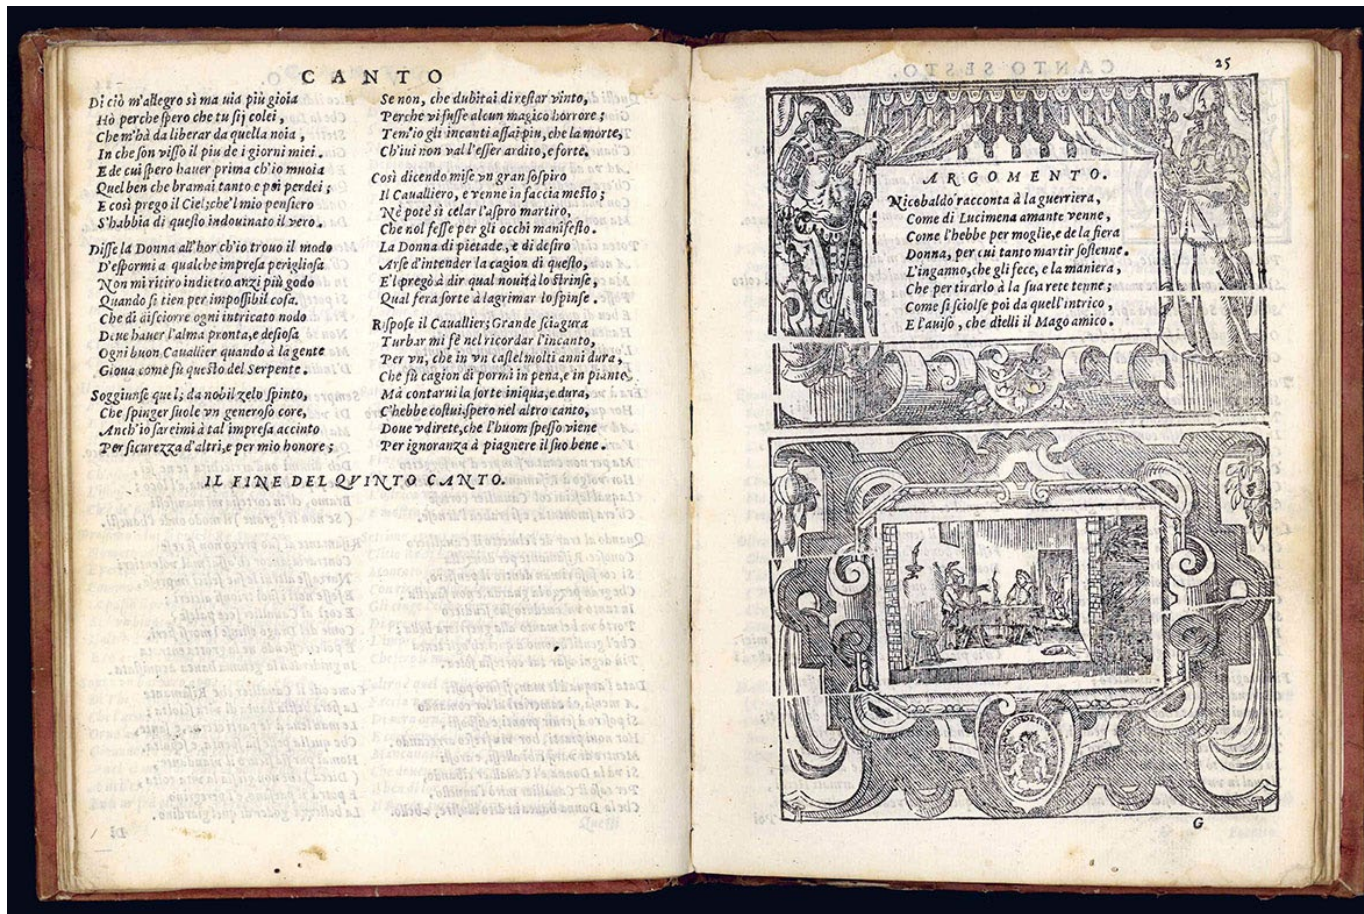 CANTO
Di ciò m'allegro sì ma uia più gioia
Hò perche spero che tu sij colei,
Che m'hà da liberar da quella noia,
In che son visso il piu de i giorni miei.
E de cui spero hauer prima ch'io muoia
Quel ben che bramai tanto e poi perdei;
E così prego il Ciel; che'l mio pensiero
S'habbia di questo indouinato il vero.
Disse la Donna all'hor ch'io trouo il modo
D'espormi a qualche impresa perigliosa
Non mi ritiro indietro anzi più godo
Quando si tien per impossibil cosa.
Che di disciorre ogni intricato nodo
Deue hauer l'alma pronta, e desiosa
Ogni buon Cauallier quando à la gente
Gioua come fù questo del Serpente.
Soggiunse quel; da nobil zelo spinto,
Che spinger suole vn generoso core,
Anch'io sarei mi à tal impresa accinto
Per sicurezza d'altri, e per mio honore;
Se non, che dubitai di restar vinto,
Perche vi fusse alcun magico horrore;
Tem'io gli incanti assai piu, che la morte,
Ch'iui non val l'esser ardito, e forte.
Così dicendo mise vn gran sospiro
Il Caualliero, e venne in faccia mesto;
Nè potè sì celar l'aspro martiro,
Che nol fesse per gli occhi manifesto.
La Donna di pietade, e di desiro
Arse d'intender la cagion di questo,
E'l pregò à dir qual nouità lo strinse,
Qual fera sorte à lagrimar lo spinse.
Rispose il Cauallier; Grande sciagura
Turbar mi fè nel ricordar l'incanto,
Per vn, che in vn castel molti anni dura,
Che fù cagion di pormi in pena, e in pianto,
Mà contarui la sorte iniqua, e dura,
C'hebbe costui, spero nel altro canto,
Doue vdirete, che l'huom spesso viene
Per ignoranza à piagnere il suo bene.
IL FINE DEL QVINTO CANTO.
25
ARGOMENTO.
Nicobaldo racconta à la guerriera,
Come di Lucimena amante venne,
Come l'hebbe per moglie, e de la fiera
Donna, per cui tanto martir sostenne.
L'inganno, che gli fece, e la maniera,
Che per tirarlo à la sua rete tenne;
Come si sciolse poi da quell'intrico,
E l'auiso, che dielli il Mago amico.
G